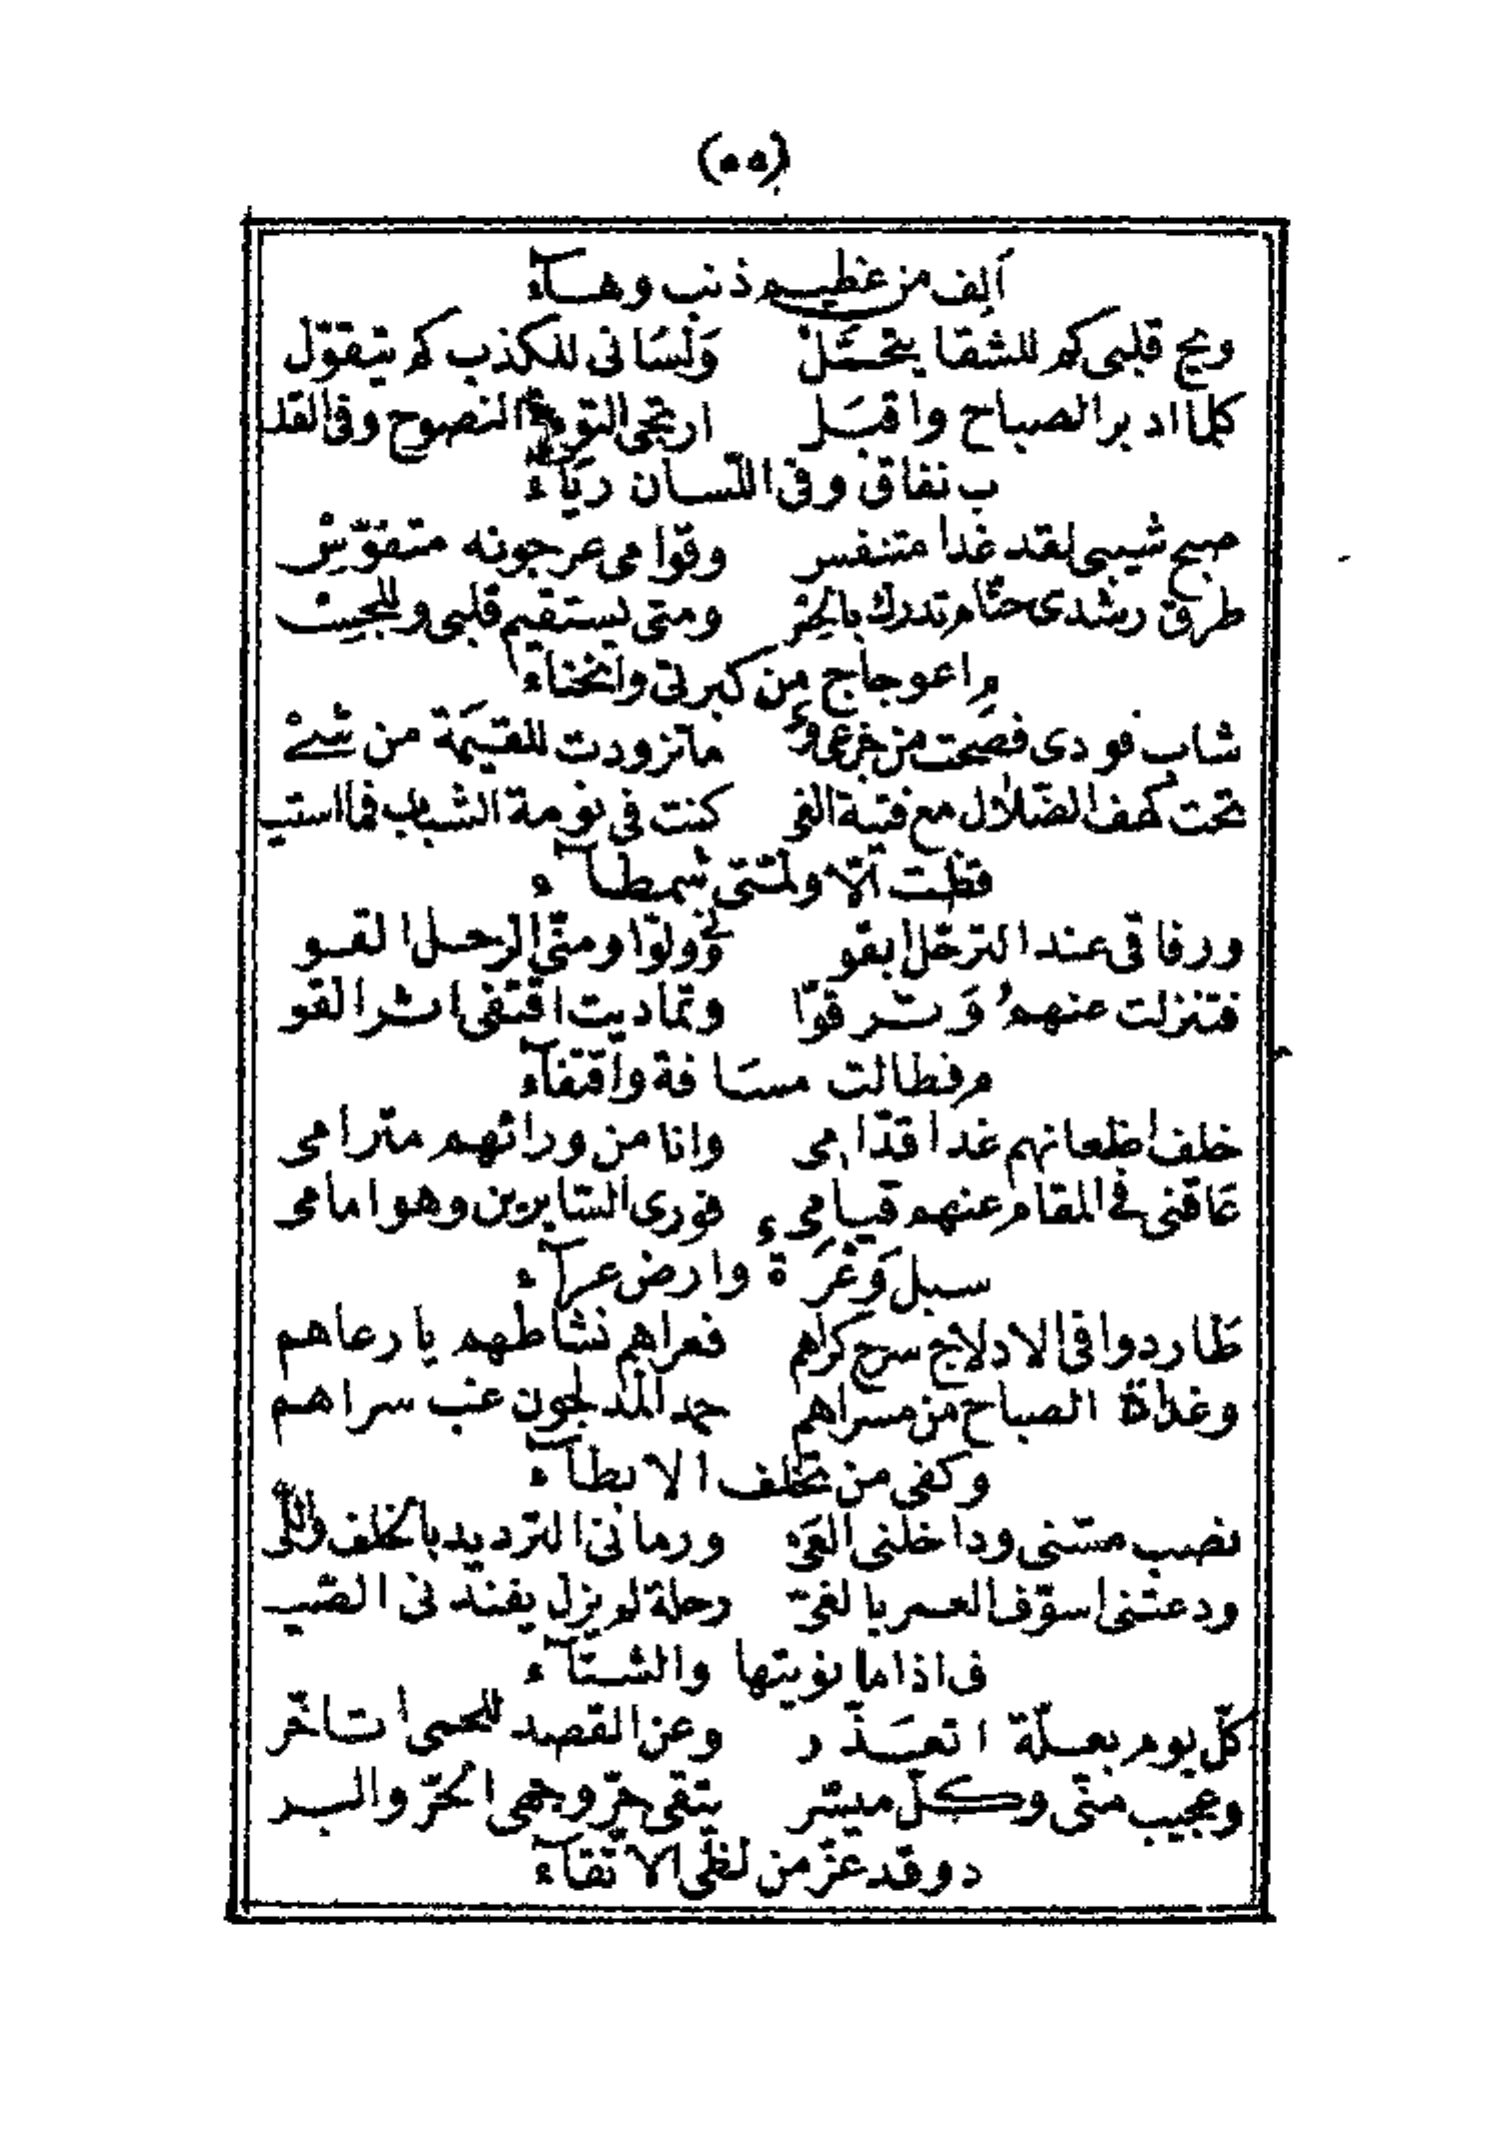 (٥٥)
ألف من عظيم ذنب وهآء
ويح قلبي كم للشقا يتحمّل ولساني للكذب كم يتقوّل
كلما ادبر الصباح واقبل ارتجى التوبة النصوح وفى القلـ
ب نفاق وفى اللسان ريآء
صبح شيبى لقد غدا متنفس وقوامى عرجونه متقوّس
طرق رشدى حتّام تدرك بالحسّ ومتى يستقيم قلبى وللجسـ
م اعوجاج من كبرتى وانحناء
شاب فودى فصحت من جزعى وئ ما تزودت للقيمة من شئ
تحت كهف الضلال مع فتية الغى كنت فى نومة الشباب فما استيـ
قظت الّا ولمّتى شمطآء
ورفاقى عند الترحّل ابقو نى وولّوا ومنّى الرحل القو
فتنزلت عنهمُ وترقوّا وتماديت اقتفى اثر القو
م فطالت مسافة واقتفآء
خلف اظعانهم غدا قدّامى وانا من ورائهم مترامى
عاقنى فى المقام عنهم قيامى فورى السّايرين وهو امامى
سبل وعرة وارض عرآء
طاردوا فى الادلاج سرح كراهم فعراهم نشاطهم يا رعاهم
وغداة الصباح من مسراهم حمد المدلجون غب سراهم
وكفى من تخلف الابطآء
نصب مسّنى وداخلنى العىّ ورمانى الترديد بالخلف واللّى
ودعتنى اسوّف العمر يا لغىّ رحلة لم يزل يفند نى الصّيـ
ف اذا ما نويتها والشتآء
كلّ يوم بعلّة اتعذّر وعن القصد للحمى اتأخّر
وعجيب منّى وكلّ ميسّر يتقى حرّ وجهى الحرّ والبر
د وقد عزّ من لظى الاتّقآء